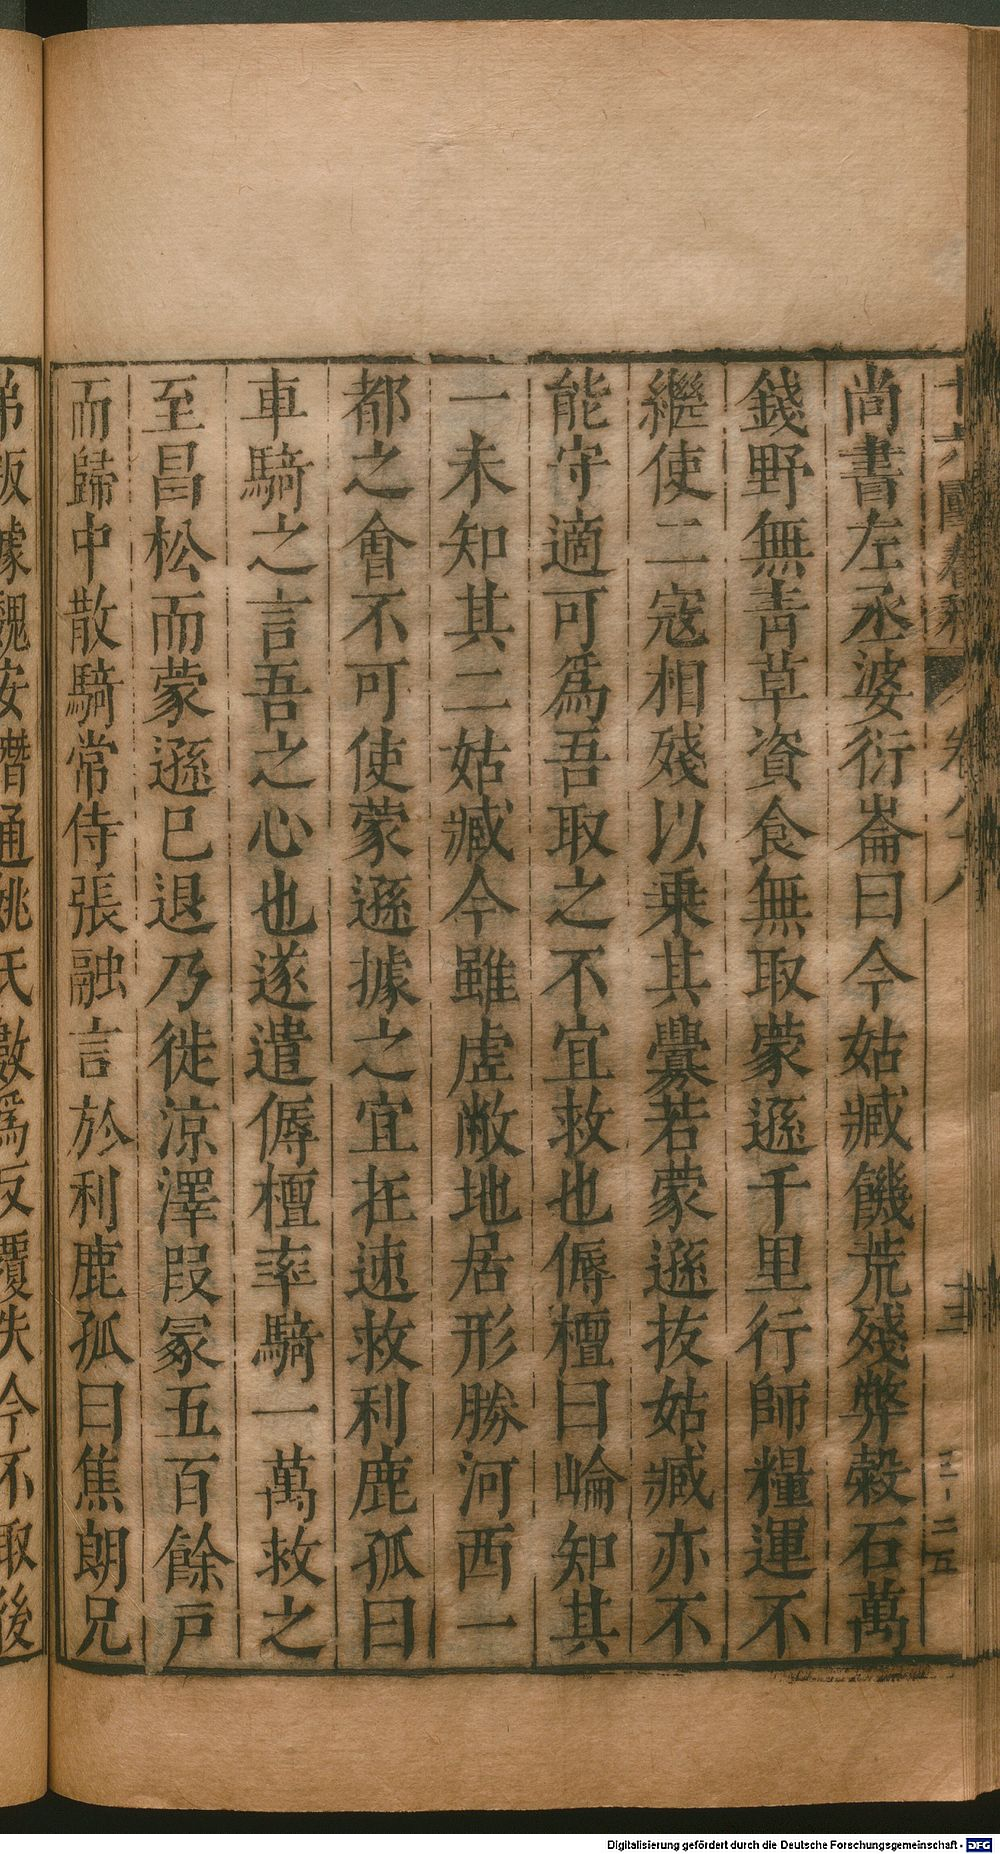 十六國春秋 卷八十八
尚書左丞婆衍崙曰今姑臧饑荒殘弊穀石萬
錢野無靑草資食無取蒙遜千里行師糧運不
繼使二寇相殘以乗其釁若蒙遜抜姑臧亦不
能守適可爲吾取之不宜救也傉檀曰崘知其
一未知其二姑臧今雖虚敝地居形勝河西一
都之會不可使蒙遜據之宜在速救利鹿孤曰
車騎之言吾之心也遂遣傉檀率騎一萬救之
至昌松而蒙遜已退乃徙涼澤叚冡五百餘戸
而歸中散騎常侍張融言於利鹿孤曰焦朗兄
弟叛據魏安潛通姚氏數爲反覆失今不取後
Digitalisierung gefördert durch die Deutsche Forschungsgemeinschaft - DFG